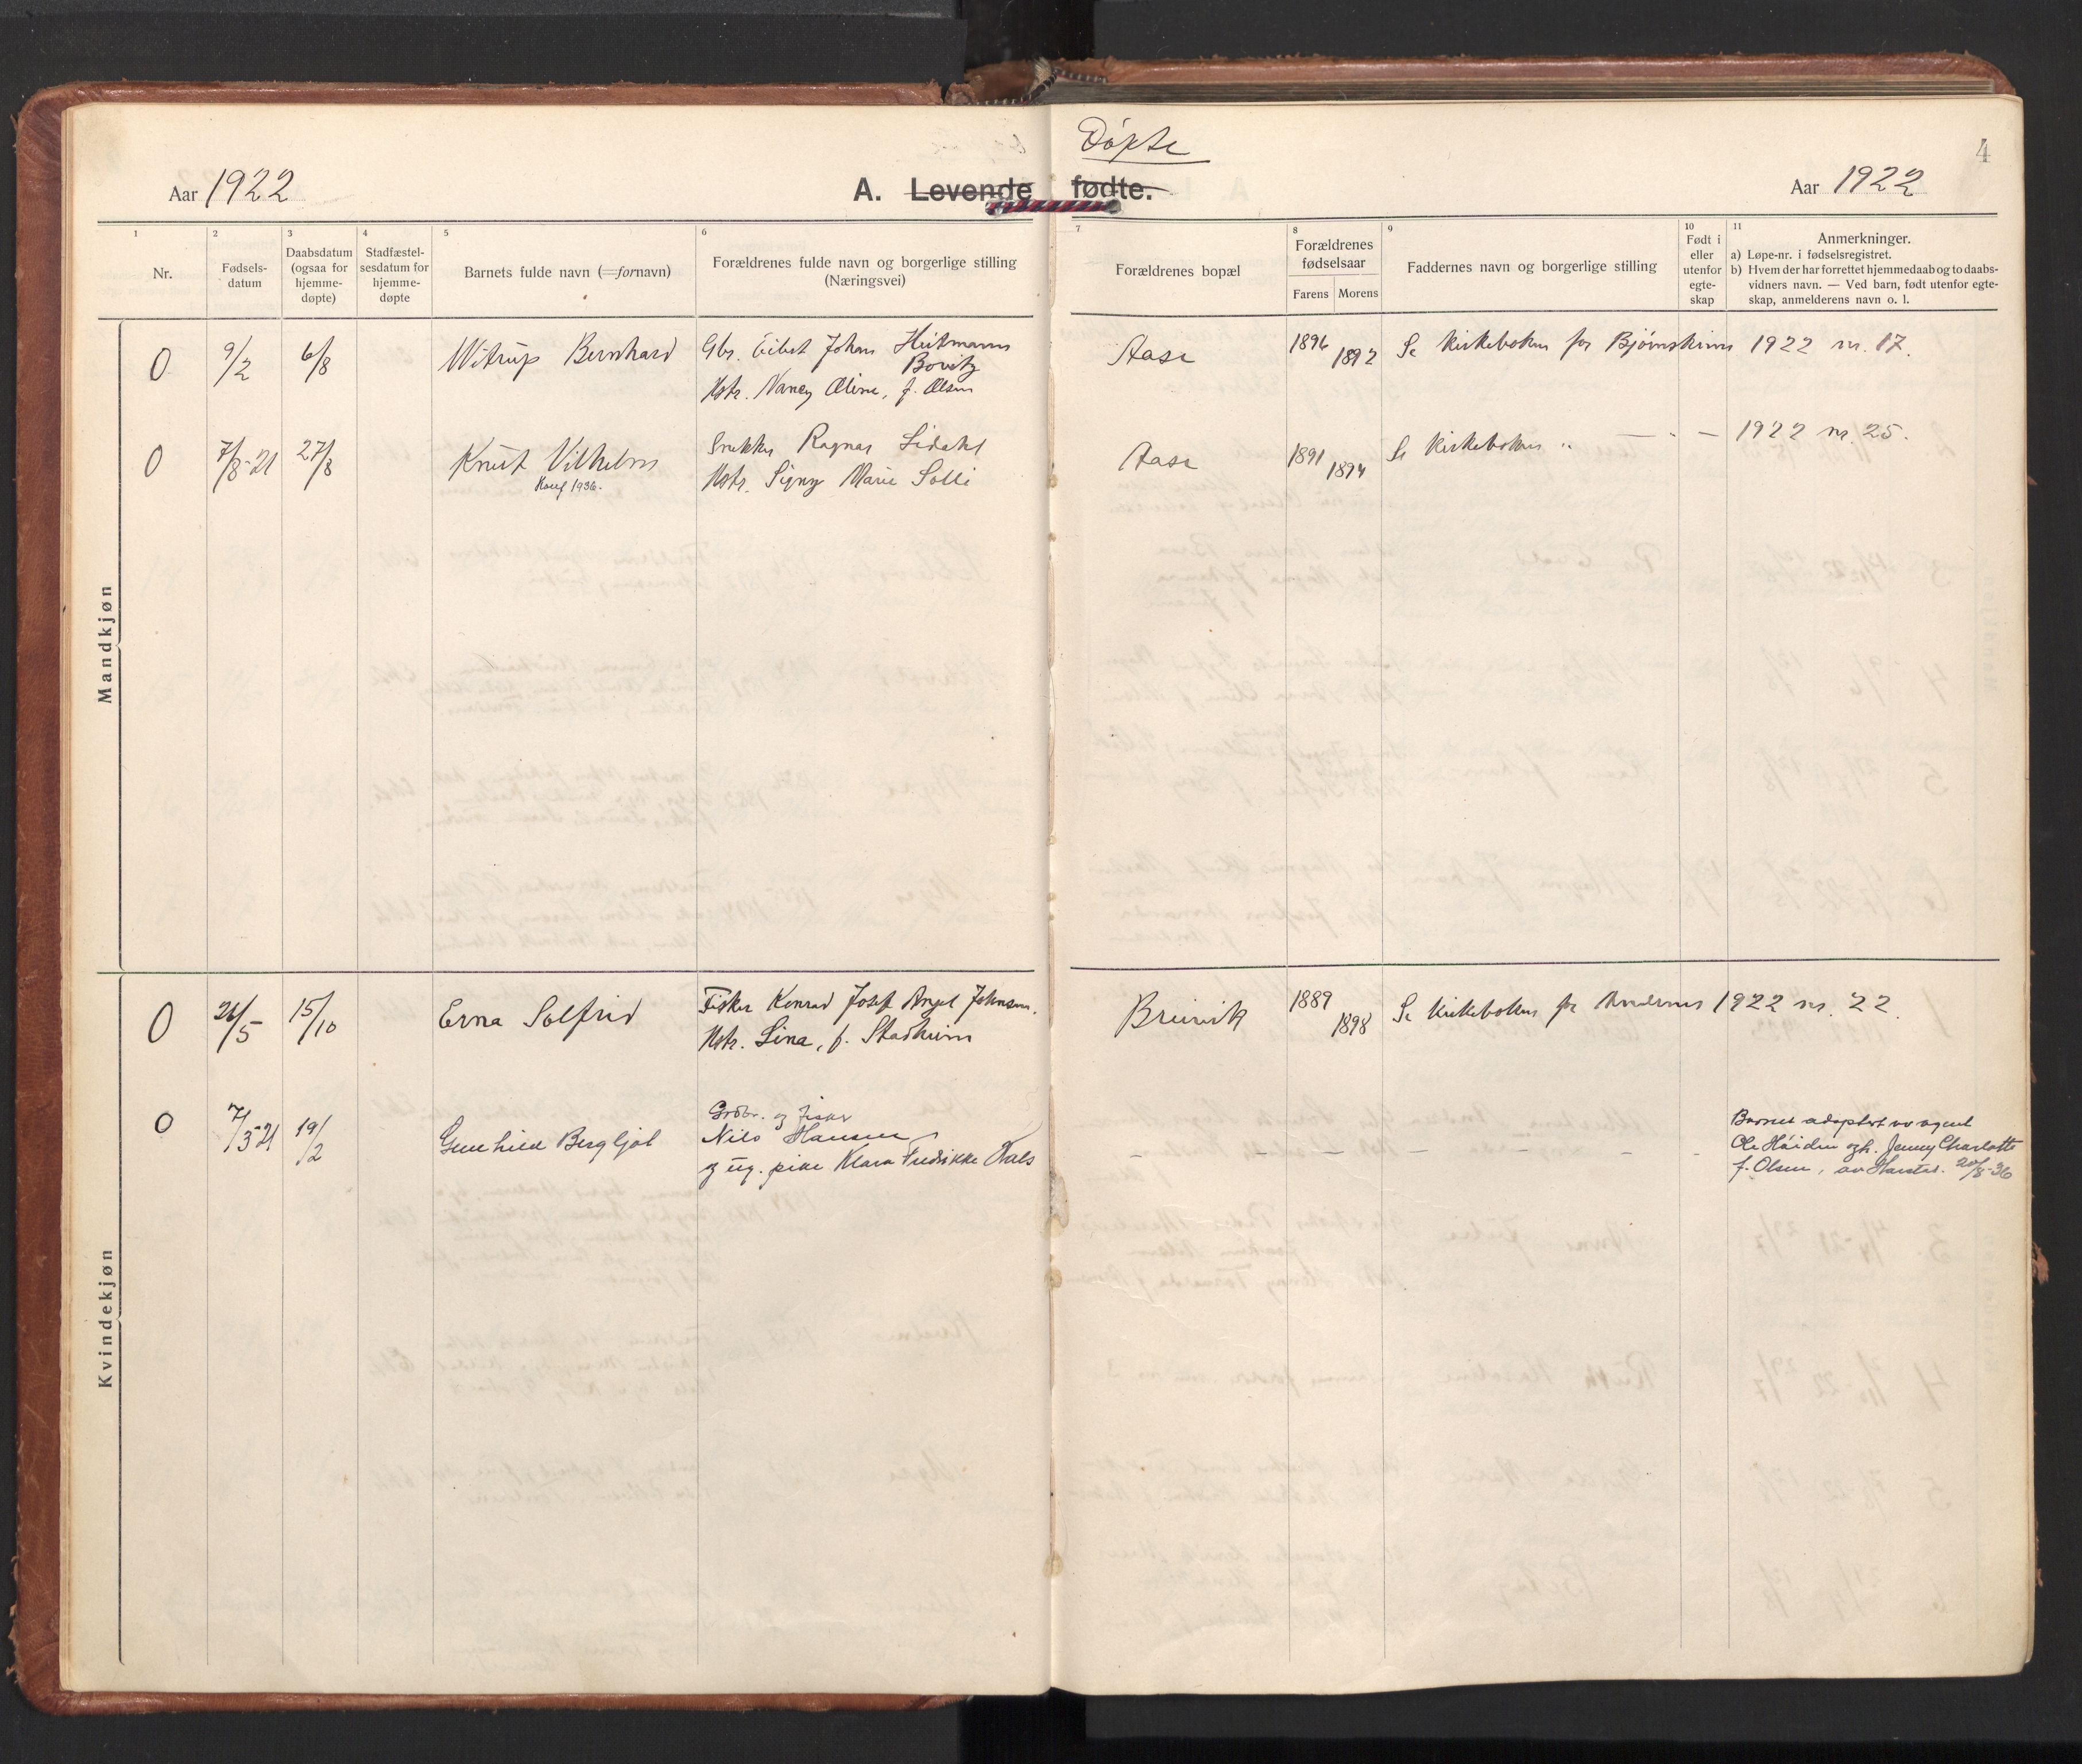 Døpte
4
Aar 1922
A. Levende fødte.
Aar 1922
1 2 3 4 5 6 7 8 9 10 11
Nr.
Fødsels-
datum
Daabsdatum
(ogsaa for
hjemme-
døpte)
Stadfæstel-
sesdatum for
hjemme-
døpte
Barnets fulde navn (fornavn)
Forældrenes fulde navn og borgerlige stilling
(Næringsvei)
Forældrenes bopæl
Forældrenes
fødselsaar
Farens Morens
Faddernes navn og borgerlige stilling
Født i
eller
utenfor
egte-
skap
Anmerkninger.
a) Løpe-nr. i fødselsregistret.
b) Hvem der har forrettet hjemmedaab og to daabs-
vidners navn. — Ved barn, født utenfor egte-
skap, anmelderens navn o. l.
Mandkjøn
0 9/2 6/8 Witrup Bernhard
Gbr. Johan Heitmann
Bovitz
Hstr. Nancy Oline, f. Olsen
Aase 1896 1892
Se kirkeboken for Bjørnskinn 1922 nr. 17.
0 7/8-21 27/8 Knut Vilhelm
Konf 1936.
Snekker Ragnar Lidahl
Hstr. Signy Marie Solli
Aase 1891 1894
Se kirkeboken " — " — 1922 nr. 25.
Kvindekjøn
0 26/5 15/10 Erna Solfrid
Fisker Konrad Josef Angel Johnsen.
Hstr. Lina, f. Stadheim
Breivik 1889 1898
Se kirkeboken for Andenes 1922 nr. 22.
0 7/5-21 19/2 Gunhild Bergljot
Grdbr. og fisker
Nils Hansen
og ug. pike Klara Fredrikke Dals
— — — — — — — —
Barnet adoptert av agent
Ole Høiden og h. Jenny Charlotte
f. Olsen, av Harstad. 20/8-36